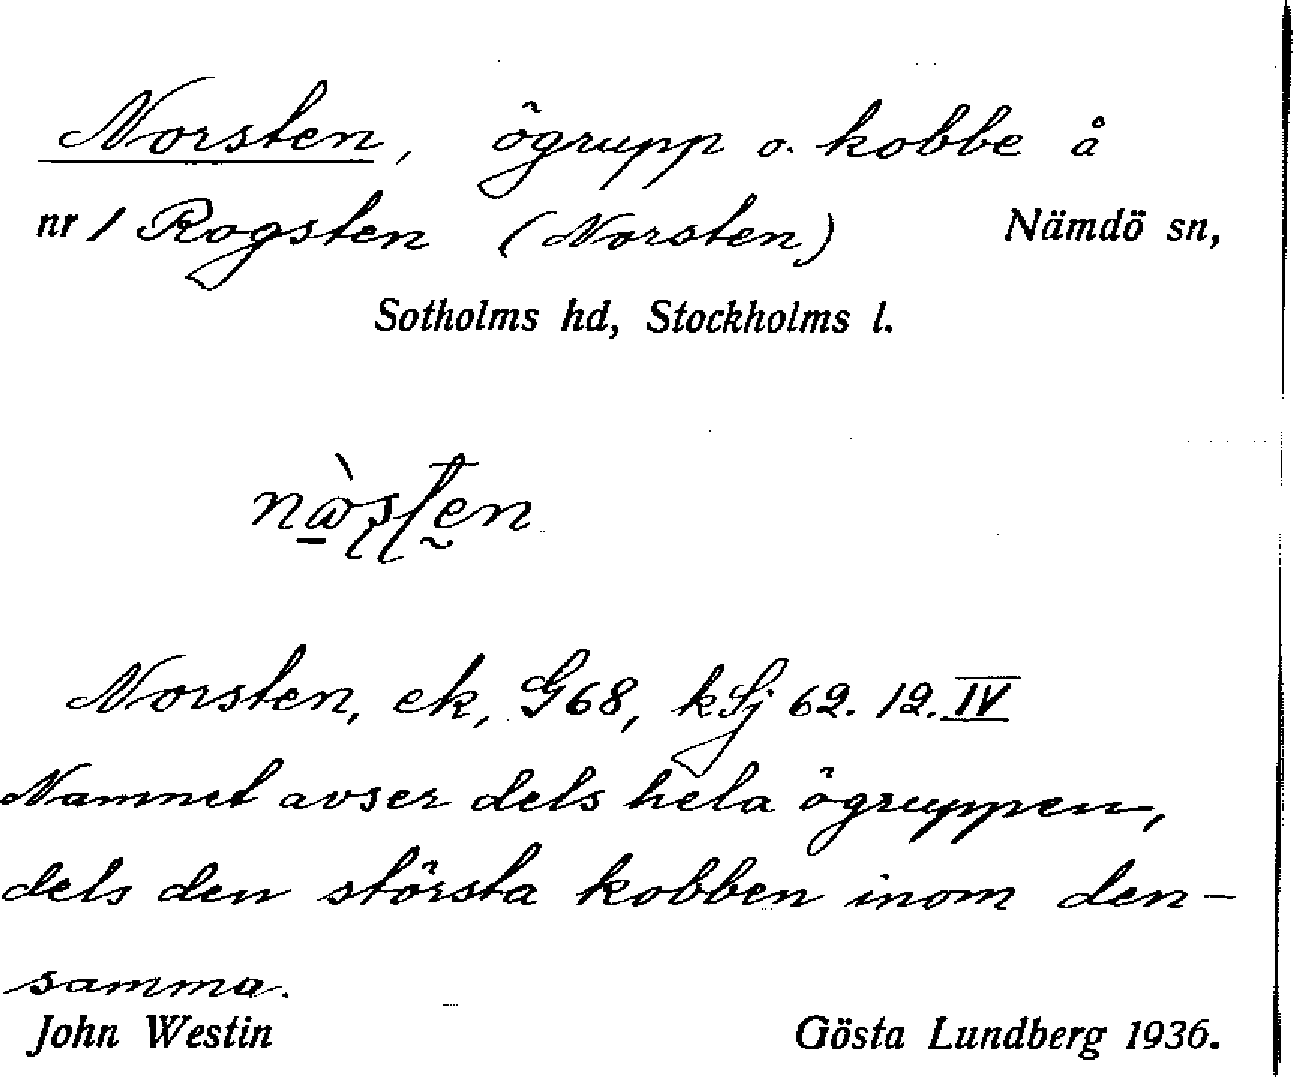 Norsten, ögrupp o. kobbe å
nr 1 Rogsten (Norsten) Nämdö sn,
Sotholms hd, Stockholms l.
Norsten, ek, G68, kSj 62. 12. IV
Namnet avser dels hela ögruppen,
dels den största kobben inom den-
samma.
John Westin Gösta Lundberg 1936.